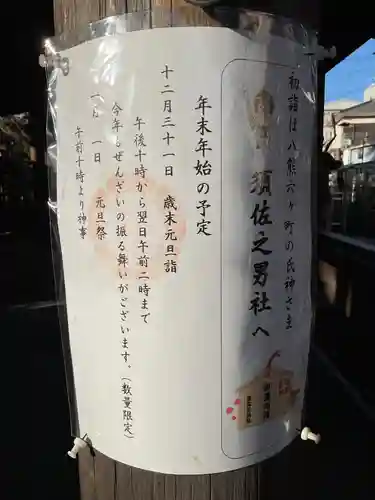 初詣は八熊六ヶ町の氏神さま
須佐之男社へ
年末年始の予定
十二月三十一日 歳末元旦詣
午後十時から翌日午前二時まで
今年もぜんざいの振る舞いがございます。(数量限定)
一月 一日 元旦祭
午前十時より神事